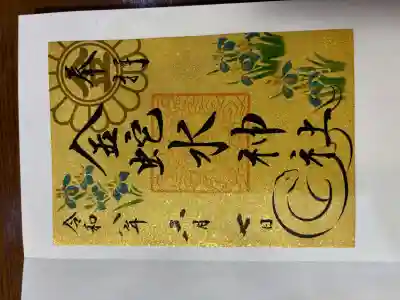 奉拝
金
金蛇水神社
令和八年 月七日